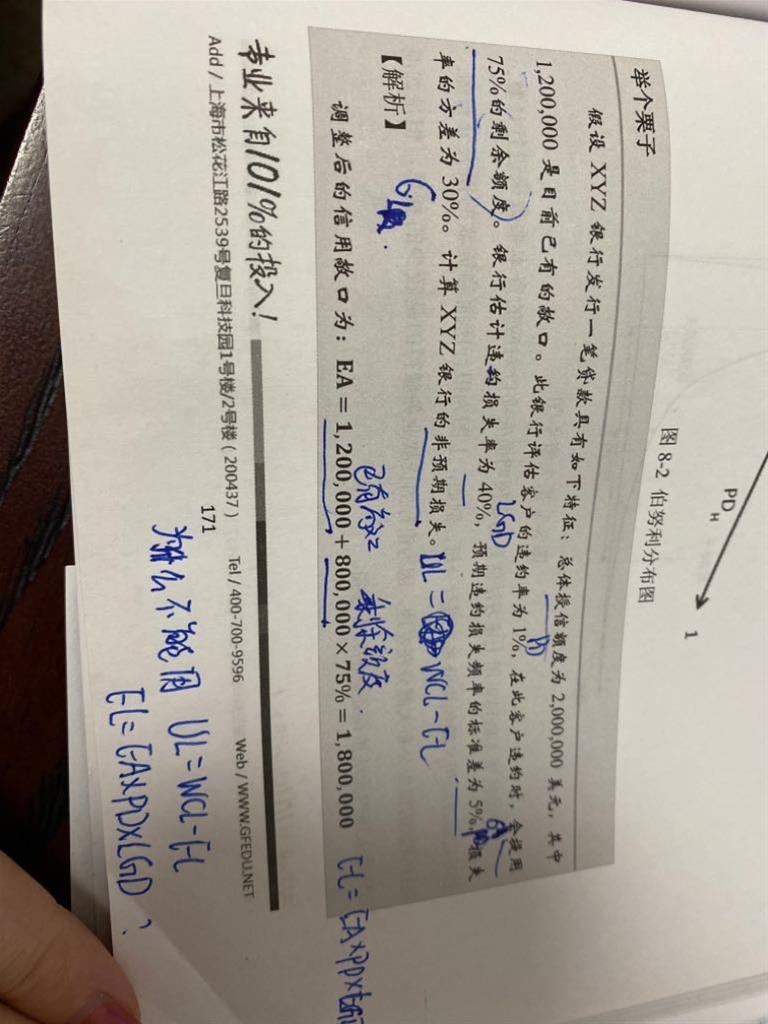 PD_H
1
图 8-2 伯努利分布图
举个栗子
假设 XYZ 银行发行一笔贷款具有如下特征：总体授信额度为 2,000,000 美元，其中
1,200,000 是目前已有的敞口。此银行评估客户的违约率为 1%，在此客户违约时，会提用
75%的剩余额度。银行估计违约损失率为 40%，预期违约损失频率的标准差为 5%，损失
率的方差为 30%。计算 XYZ 银行的非预期损失。
PD
LGD
UL = WCL-EL
【解析】
已有敞口 剩余额度
调整后的信用敞口为：EA＝1,200,000＋800,000×75%＝1,800,000
EL = EA×PD×LGD
专业来自101%的投入！
Add / 上海市松花江路2539号复旦科技园1号楼/2号楼（200437） Tel / 400-700-9596 Web / WWW.GFEDU.NET
171
为什么不能用 UL=WCL-EL
EL=EA×PD×LGD ?